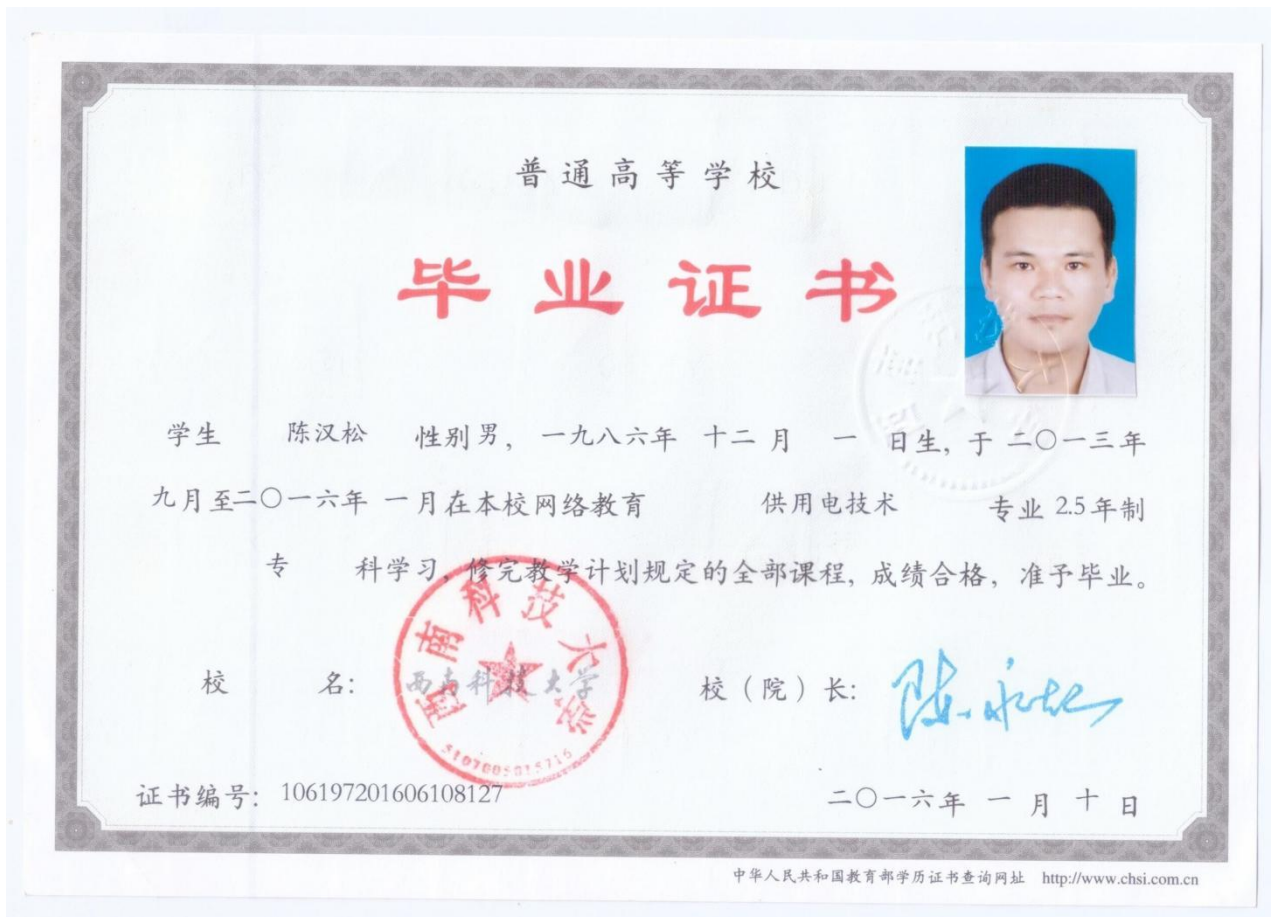 普通高等学校
毕业证书
学生 陈汉松 性别男，一九八六年 十二月 一 日生，于二〇一三年
九月至二〇一六年 一月在本校网络教育 供用电技术 专业 2.5年制
专 科学习，修完教学计划规定的全部课程，成绩合格，准予毕业。
校 名：西南科技大学 校（院）长：
西南科技大学
证书编号：106197201606108127 二〇一六年 一 月 十 日
中华人民共和国教育部学历证书查询网址 http://www.chsi.com.cn